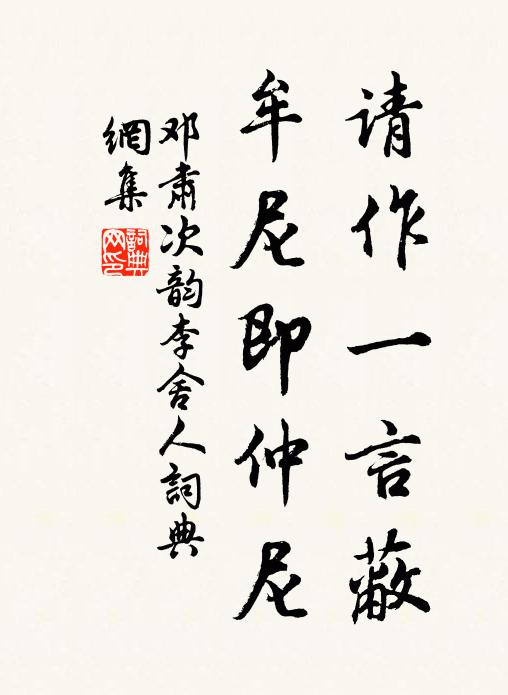 请作一言蔽
牟尼即仲尼
邓肃次韵李舍人詞典
網集
詞典
网印